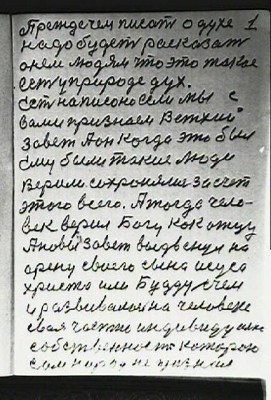 Прежде чем писат о духе 1
надо будет расказат
о нем людям что это такое
ест у природе дух.
ест написоно если мы с
вами признаем Ветхий
завет А он когда это был
ему были такие люди
верили сохроняли за счет
этого всего. А тогда чело-
век верил Богу как отцу
А новый завет выдвенул на
арену своего сына исуса
христа или Будду с чем
и развивался на человеке
своя частно индивидуалная
собственност которою
сам народ не признал